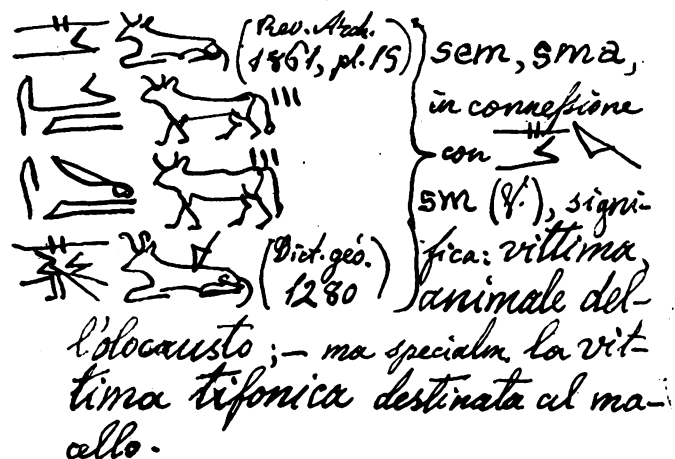 (Rev. Arch.
1861, pl. 15)
sem, sma,
in conneſsione
con
sm (V.), signi-
fica: vittima,
(Dict. géo.
1280)
animale del-
l'olocausto; — ma specialm. la vit-
tima tifonica destinata al ma-
cello.